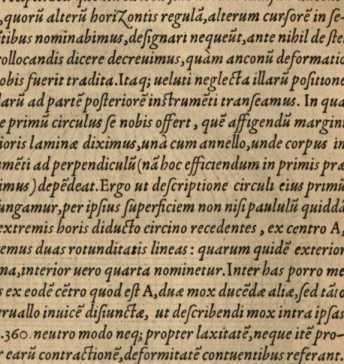 , quorū alterū horizontis regulā, alterum cursorē in se-
tibus nominabimus, designari nequeūt, ante nihil de stel
collocandis dicere decreuimus, quàm anconū deformatio
obis fuerit tradita. Itaq; ueluti neglecta illarū positione
larū ad partē posteriorē instrumēti transeamus. In qua
e primū circulus se nobis offert, quē affigendū margini
ioris laminæ diximus, unà cum annello, unde corpus in
umēti ad perpendiculū (nā hoc efficiendum in primis præ
imus) depēdeat. Ergo ut descriptione circuli eius primū
ungamur, per ipsius superficiem non nisi paululū quiddā
extremis horis diducto circino recedentes, ex centro A,
emus duas rotunditatis lineas: quarum quidē exterior
ma, interior uero quarta nominetur. Inter has porro me
s ex eodē cētro quod est A, duæ mox ducēdæ aliæ, sed tāto
eruallo inuicē disiunctæ, ut describendi mox intra ipsas
.360. neutro modo neq; propter laxitatē, neque itē pro-
r earū contractionē, deformitatē continentibus referant.